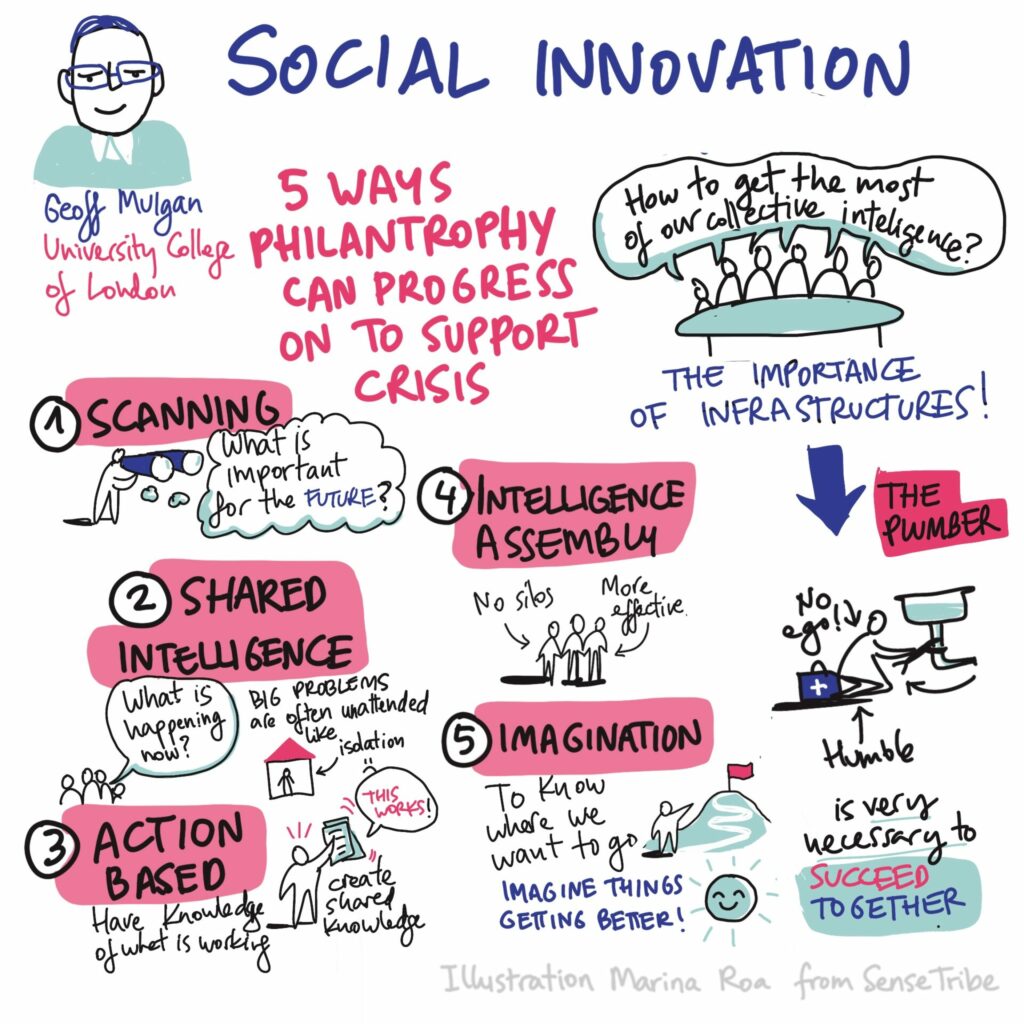 SOCIAL INNOVATION
Geoff Mulgan
University College
of London
5 WAYS
PHILANTROPHY
CAN PROGRESS
ON TO SUPPORT
CRISIS
How to get the most
of our collective inteligence?
THE IMPORTANCE
OF INFRASTRUCTURES!
1 SCANNING
What is
important
for the FUTURE?
2 SHARED
INTELLIGENCE
What is
happening
now?
BIG PROBLEMS
are often unattended
like
isolation
3 ACTION
BASED
Have Knowledge
of what is working
THIS
WORKS!
create
shared
Knowledge
4 INTELLIGENCE
ASSEMBLY
No silos
More
effective
5 IMAGINATION
To Know
where we
want to go
IMAGINE THINGS
GETTING BETTER!
THE
PLUMBER
No
ego!
Humble
is very
necessary to
SUCCEED
TOGETHER
Illustration Marina Roa from SenseTribe